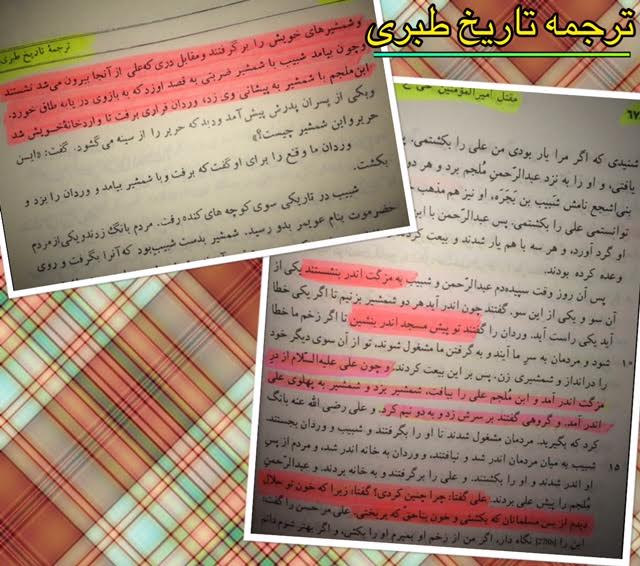 ترجمه تاریخ طبری
ترجمهٔ تاریخ طبری
و شمشیرهای خویش را برگرفتند و مقابل دری که علی از آنجا برون می‌شد نشستند
و چون بیامد شبیب با شمشیر ضربتی به قصد او زد که به بازوی در یا به طاق خورد.
ابن ملجم با شمشیر به پیشانی وی زد، وردان فراری برفت تا وارد خانهٔ خویش شد
و یکی از پسران پدرش پیش آمد و دید که حریر را از سینه می‌گشود. گفت: «این
حریر و این شمشیر چیست؟»
وردان ما وقع را برای او گفت که برفت و با شمشیر بیامد و وردان را بزد و
بکشت.
شبیب در تاریکی سوی کوچه های کنده رفت. مردم بانگ زدند و یکی از مردم
حضرموت بنام عویمر بدو رسید. شمشیر بدست شبیب بود که آنرا بگرفت و روی
مقتل امیرالمؤمنین
شنیدی که اگر مرا یار بودی من علی را بکشتمی.
یافتی، و او را به نزد عبدالرّحمنِ مُلجم برد و هر دو
بنی‌اشجع نامش شبیب بن بَجَرَه، او نیز هم مذهب
توانستمی علی را بکشتمی. پس عبدالرّحمن با این
او گرد آورده، و هر سه با هم یار شدند و بیعت کرد
وعده کرده بودند.
پس آن روز وقت سپیده‌دم عبدالرّحمن و شبیب به مزگت اندر بنشستند یکی از
آن سو و یکی از این سو. گفتند چون اندر آید هر دو شمشیر بزنیم تا اگر یکی خطا
آید یکی راست آید. وردان را گفتند تو پیش مسجد اندر بنشین تا اگر زخم ما خطا
۱۰ شود و مردمان به سرِ ما آیند و به گرفتن ما مشغول شوند، تو از آن سوی دیگر خود
را درانداز و شمشیری زن. پس بر این بیعت کردند. و چون علی علیه‌السّلام از در
مزگت اندر آمد و ابن مُلجم علی را بیافت، شمشیر بزد و شمشیر به پهلوی علی
اندر آمد. و گروهی گفتند بر سرش زد و به دو نیم کرد. و علی رضی الله عنه بانگ
کرد که بگیرید. مردمان مشغول شدند تا او را بگرفتند و شبیب و وردان بجستند.
۱۵ شبیب به میان مردمان اندر شد و نیافتند، و وردان به خانه اندر شد، و مردم از پس
او اندر شدند و او را بکشتند. و علی را برگرفتند و به خانه بردند. و عبدالرّحمنِ
مُلجم را پیش علی بردند. علی گفتا: چرا چنین کردی؟ گفتا: زیرا که خون تو حلال
دیدم از بس مسلمانان که بکشتی و خون بناحق که بریختی. علی مر حسن را گفت:
این را نگاه دار، اگر من از زخم او بمیرم او را بکش، و اگر بهتر شوم دانم